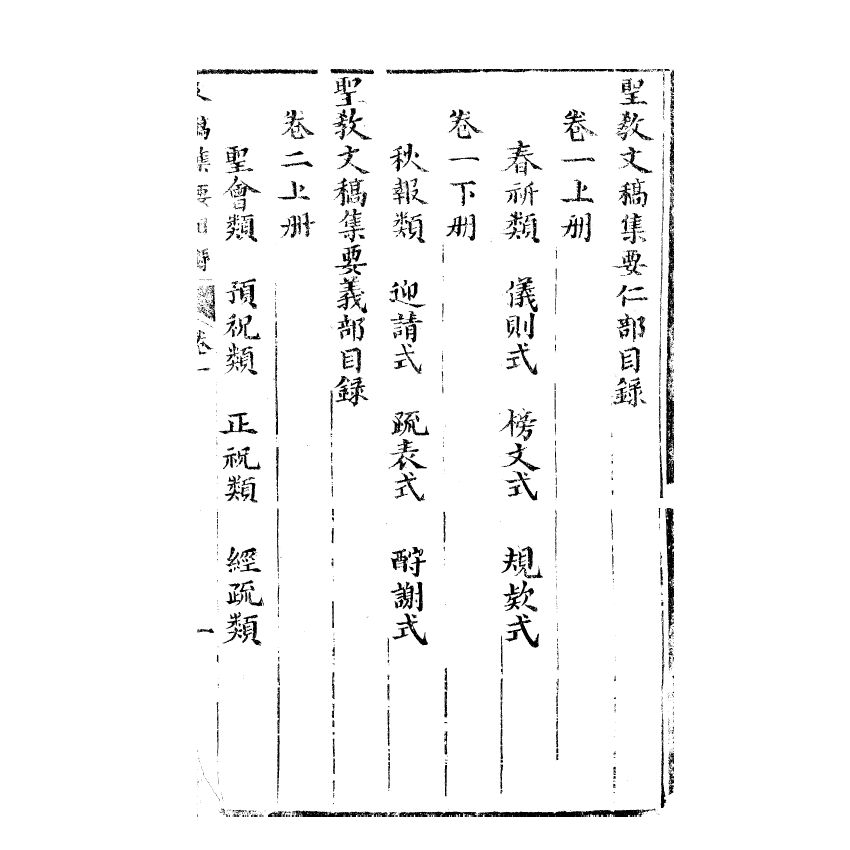 聖教文稿集要仁部目録
卷一上册
春祈類　儀則式　榜文式　規欵式
卷一下册
秋報類　迎請式　疏表式　酧謝式
聖教文稿集要義部目録
卷二上册
聖會類　預祝類　正祝類　經疏類
文稿集要目録　卷一　一